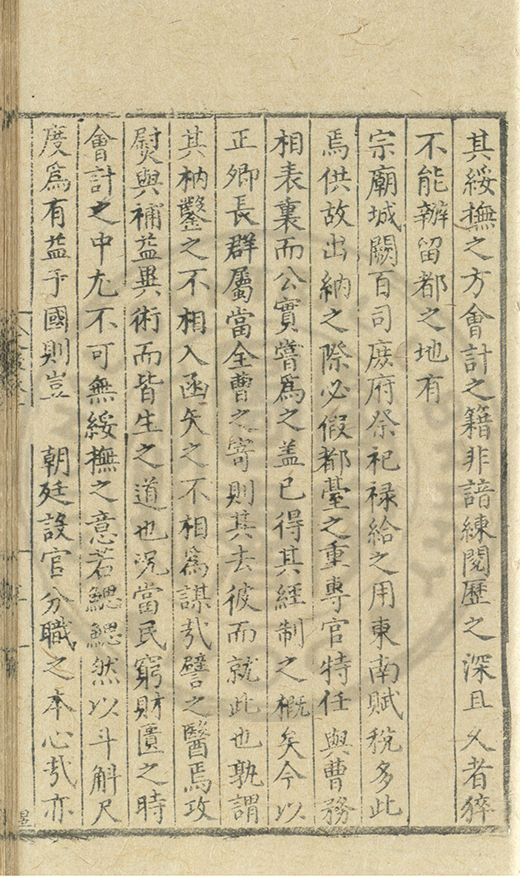 其綏撫之方會計之籍非諳練閱歷之深且久者猝
不能辦留都之地有
宗廟城闕百司庶府祭祀祿給之用東南賦稅多此
焉供故出納之際必假都臺之重專官特任與曹務
相表裏而公實嘗爲之盖已得其經制之概矣今以
正卿長群屬當全曹之寄則其去彼而就此也孰謂
其枘鑿之不相入函矢之不相爲謀㢤譬之醫焉攻
熨與補益異術而皆生之道也况當民窮財匱之時
會計之中尤不可無綏撫之意若鰓鰓然以斗斛尺
度爲有益乎國則豈 朝廷設官分職之本心㢤亦